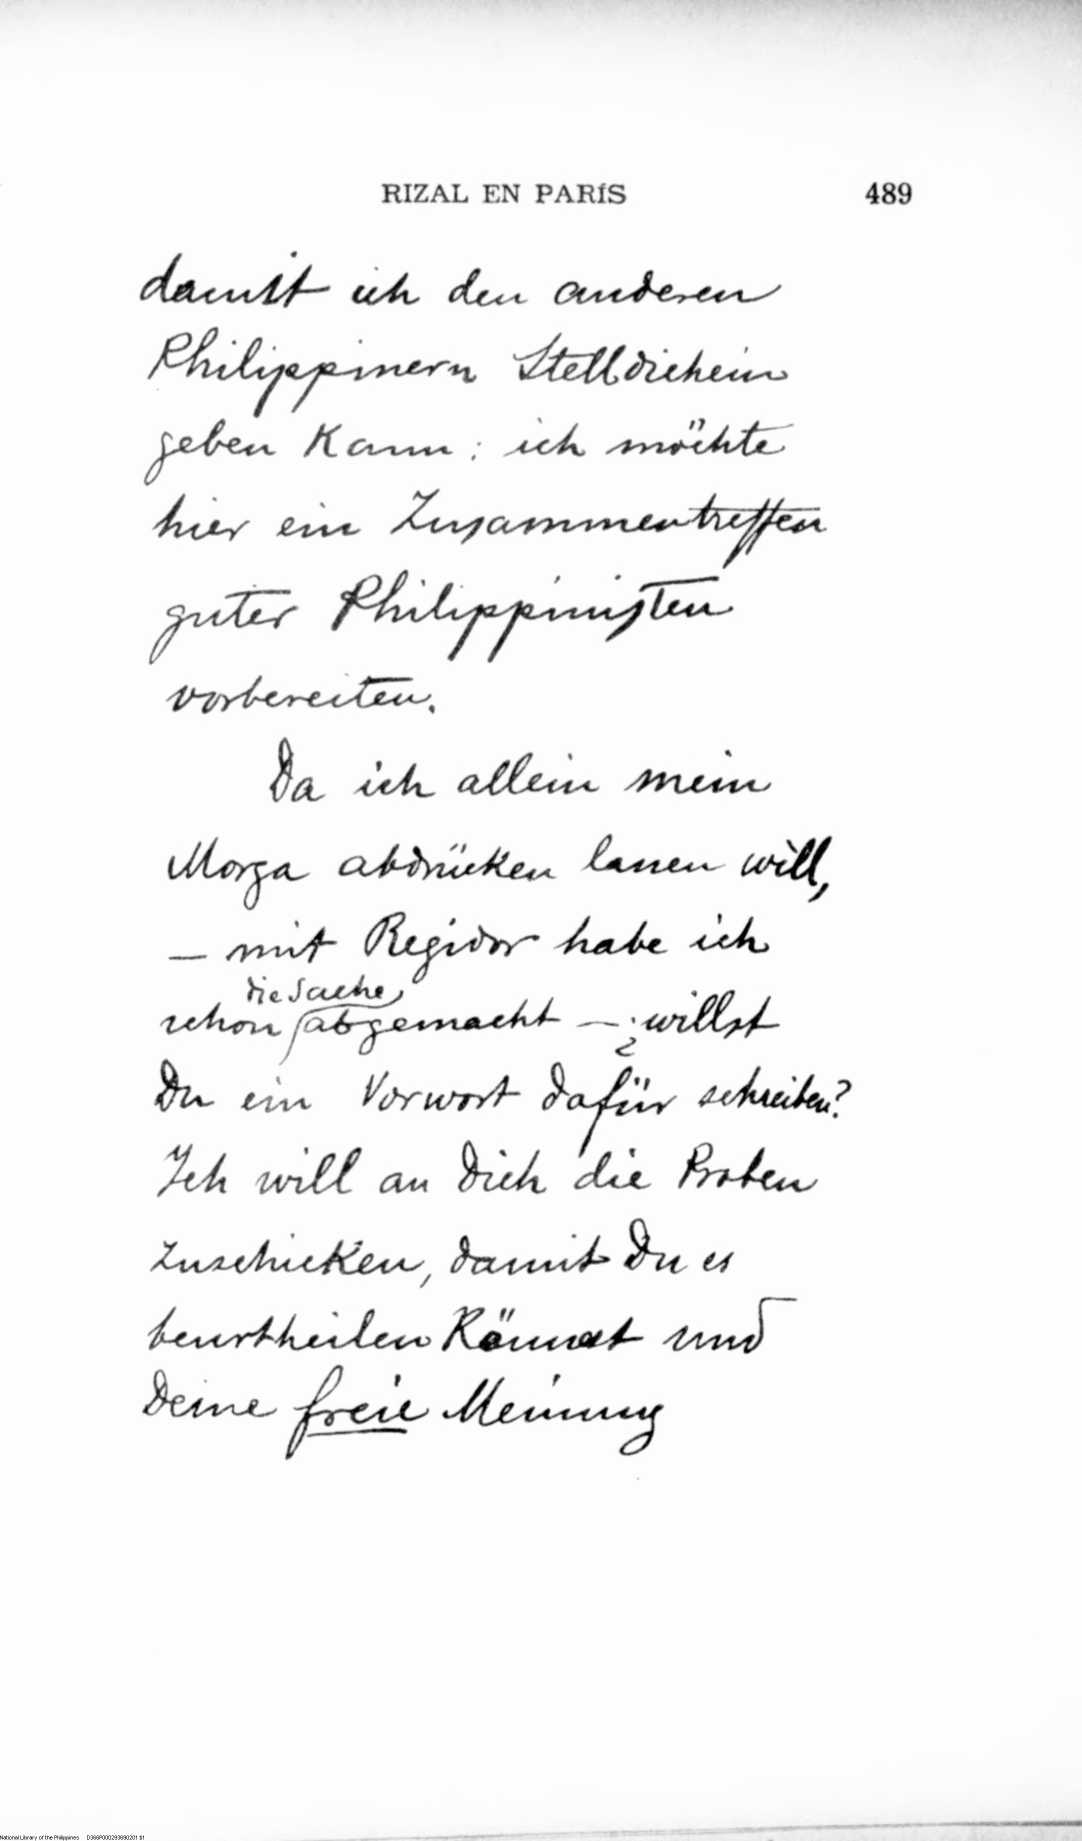 RIZAL EN PARÍS 489
damit ich den anderen
Philippinern Stelldichein
geben kann: ich möchte
hier ein Zusammentreffen
guter Philippinisten
vorbereiten.
Da ich allein mein
Morga abdrücken lassen will,
— mit Regidor habe ich
die Sache
schon abgemacht — ¿willst
Du ein Vorwort dafür schreiben?
Ich will an Dich die Proben
zuschicken, damit Du es
beurtheilen kännst und
Deine freie Meinung
National Library of the Philippines D366P000293890201 §1